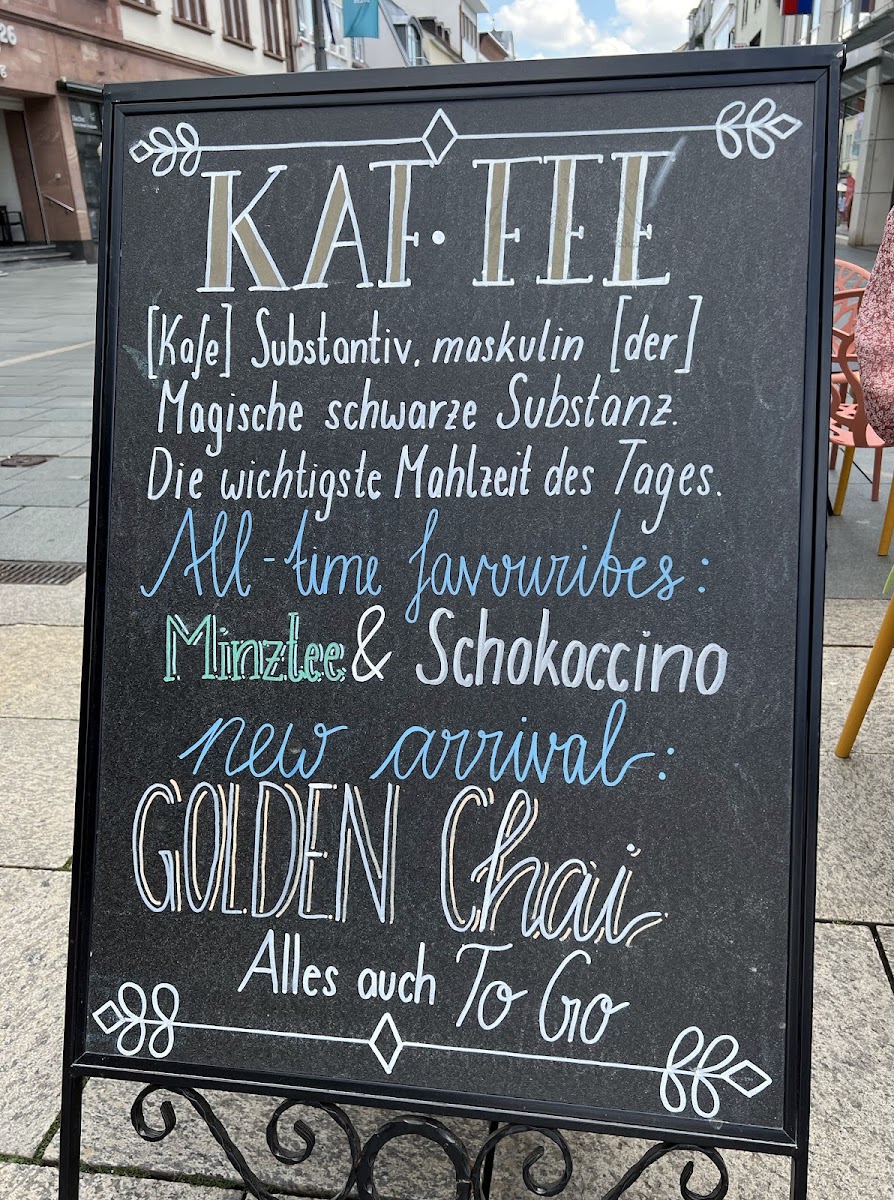 26
KAF·FEE
[Kafe] Substantiv, maskulin [der]
Magische schwarze Substanz.
Die wichtigste Mahlzeit des Tages.
All-time favourites:
Minztee & Schokoccino
new arrival:
GOLDEN Chai
Alles auch To Go